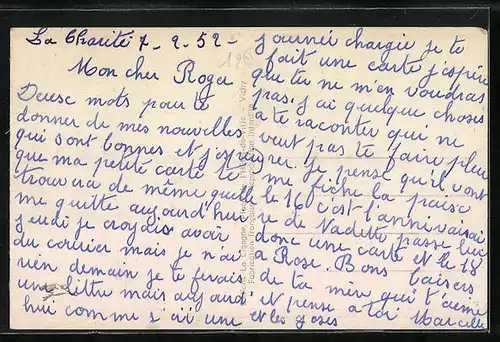 La Charité 7-2-52-
Mon cher Roger
Deux mots pour te
donner de mes nouvelles
qui sont bonnes et j'espère
que ma petite carte te
trouvera de même quelle
me quitte aujourd'hui
jeudi je croyais avoir
du courrier mais je n'ai
rien demain je te ferais
une lettre mais aujourd'
hui comme s'ai une
journéi chargée je te
fait une carte j'espère
que tu ne m'en voudras
pas. j'ai quelque choses
a te raconter qui ne
veut pas te faire plai
sir. Je pense qu'il vont
me fiche la paise
le 16 c'est l'anniversai
re de Dadette passe lui
donc une carte et le 18
a Rose. Bons baisers
de ta mère qui t'aime
et pense a toi Marcelle
et les goses